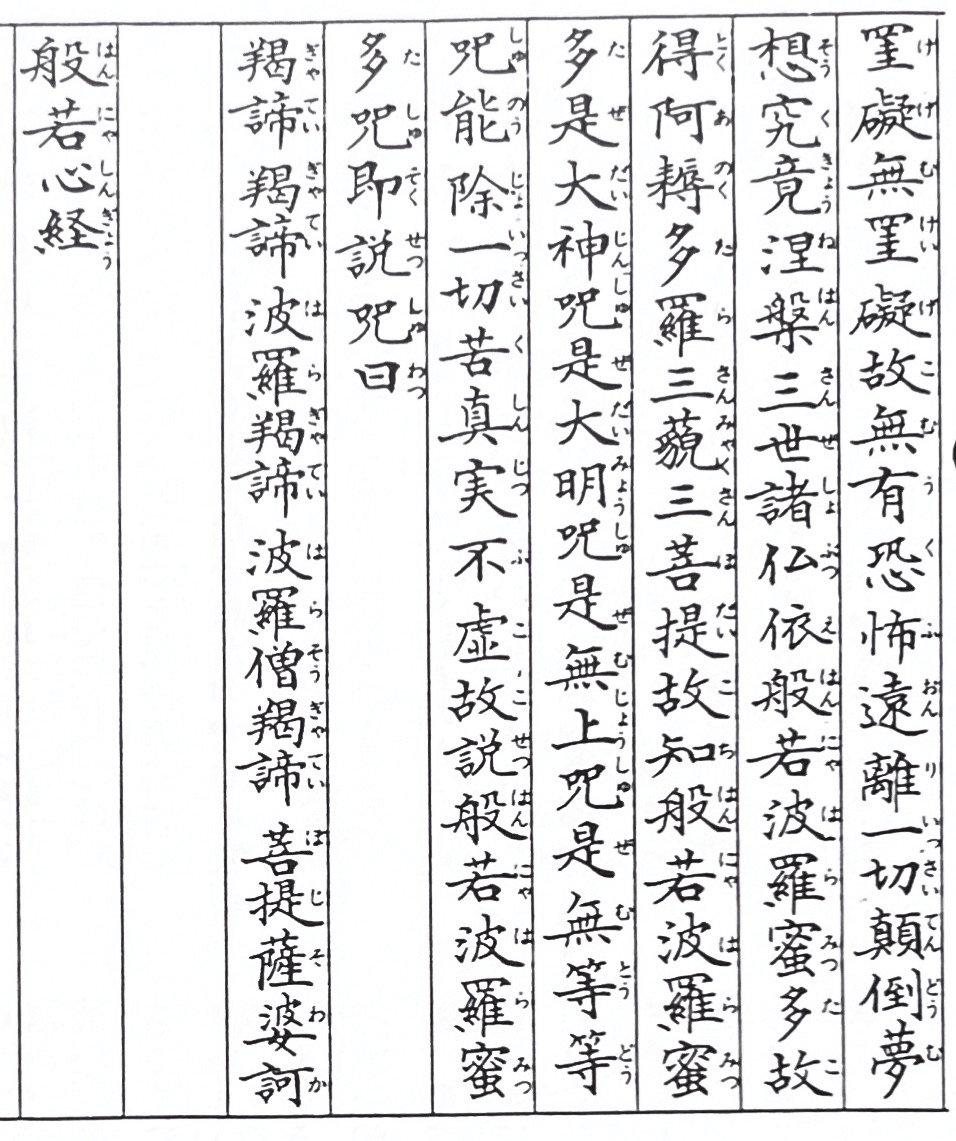 罣礙無罣礙故無有恐怖遠離一切顛倒夢
想究竟涅槃三世諸仏依般若波羅蜜多故
得阿耨多羅三藐三菩提故知般若波羅蜜
多是大神呪是大明呪是無上呪是無等等
呪能除一切苦真実不虚故説般若波羅蜜
多呪即説呪曰
羯諦 羯諦 波羅羯諦 波羅僧羯諦 菩提薩婆訶
般若心経